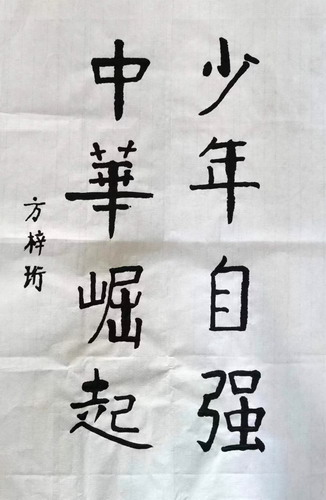 少年自强
中華崛起
方梓珩